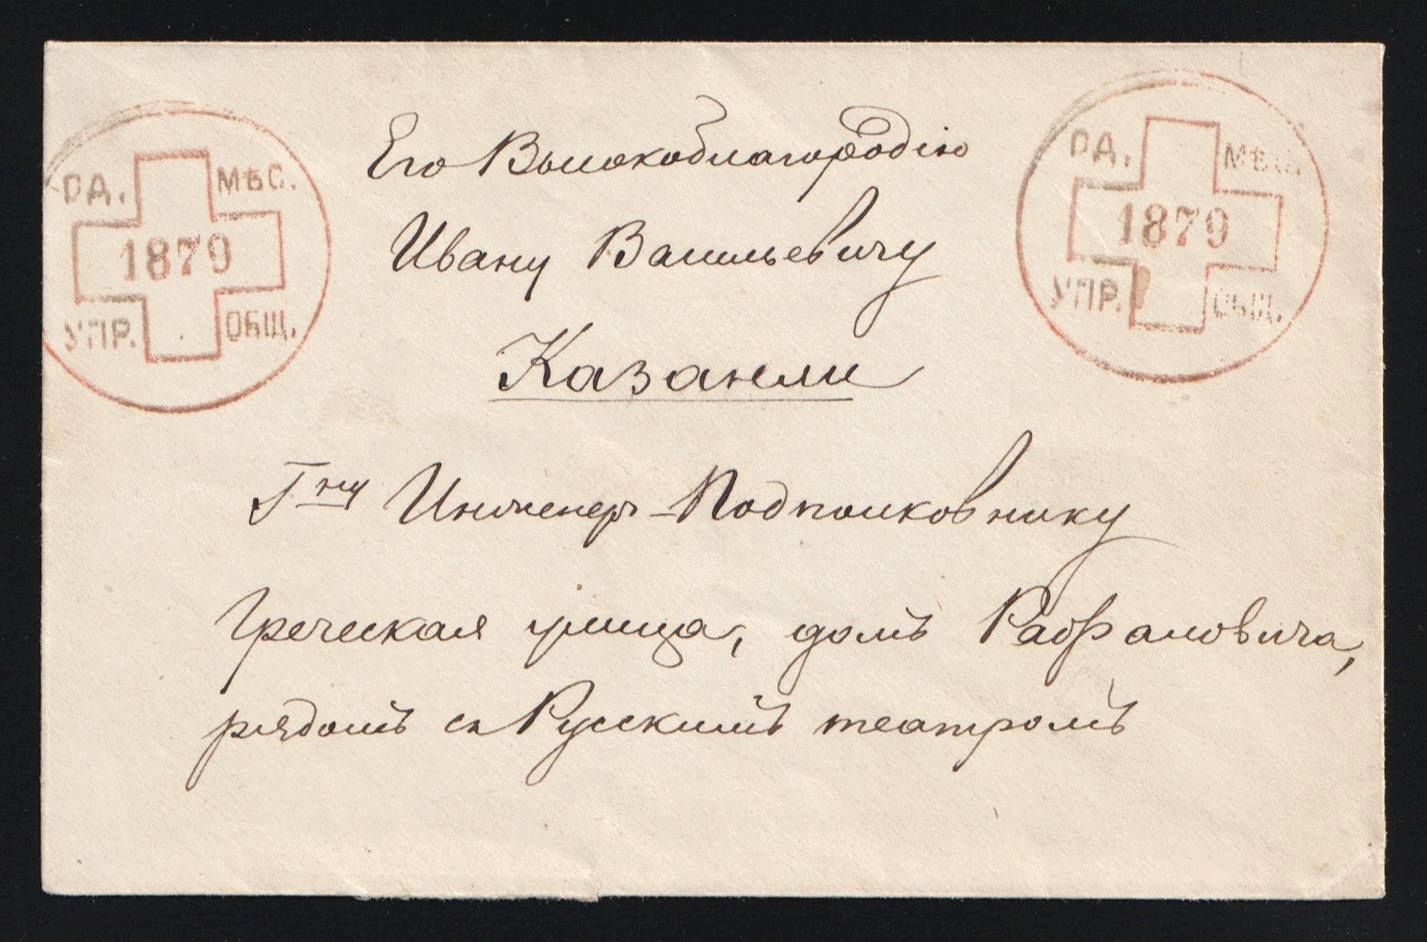 ОД. МѢС.
1879
УПР. ОБЩ.
ОД. МѢС.
1879
УПР. ОБЩ.
Его Высокоблагородію
Ивану Васильевичу
Казанли
Гну Инженеръ-Подполковнику
Греческая улица, домъ Раофаловича,
рядомъ съ Русскимъ театромъ